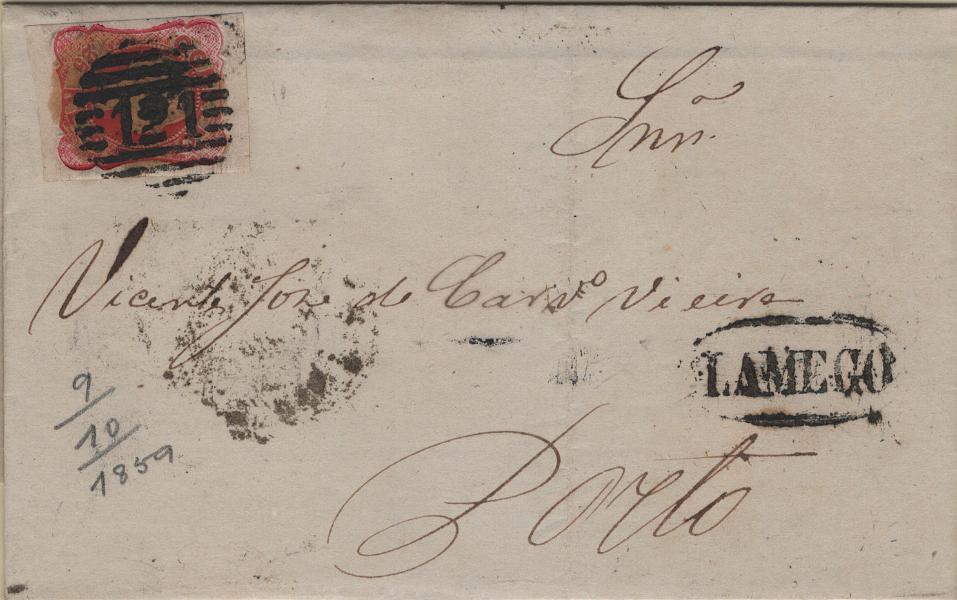 121
Snr.
Vicente Jose de Carvº Vieira
LAMEGO
9/10/1859
Porto